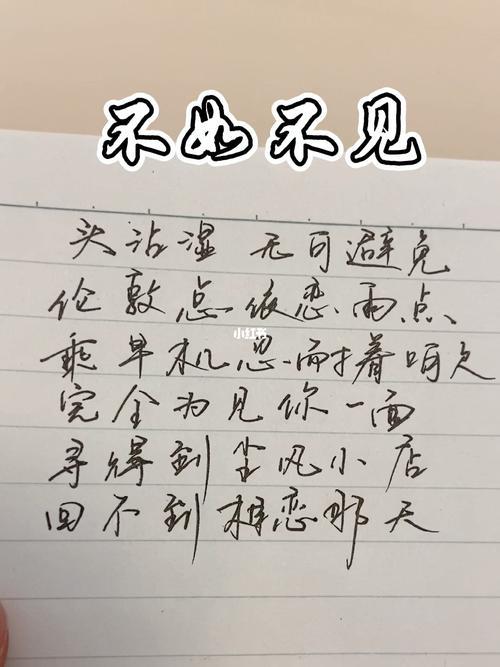 不如不见
头沾湿 无可避免
伦敦总依恋雨点
乘早机忍耐着呵欠
完全为见你一面
寻得到尘风小店
回不到相恋那天
小红书